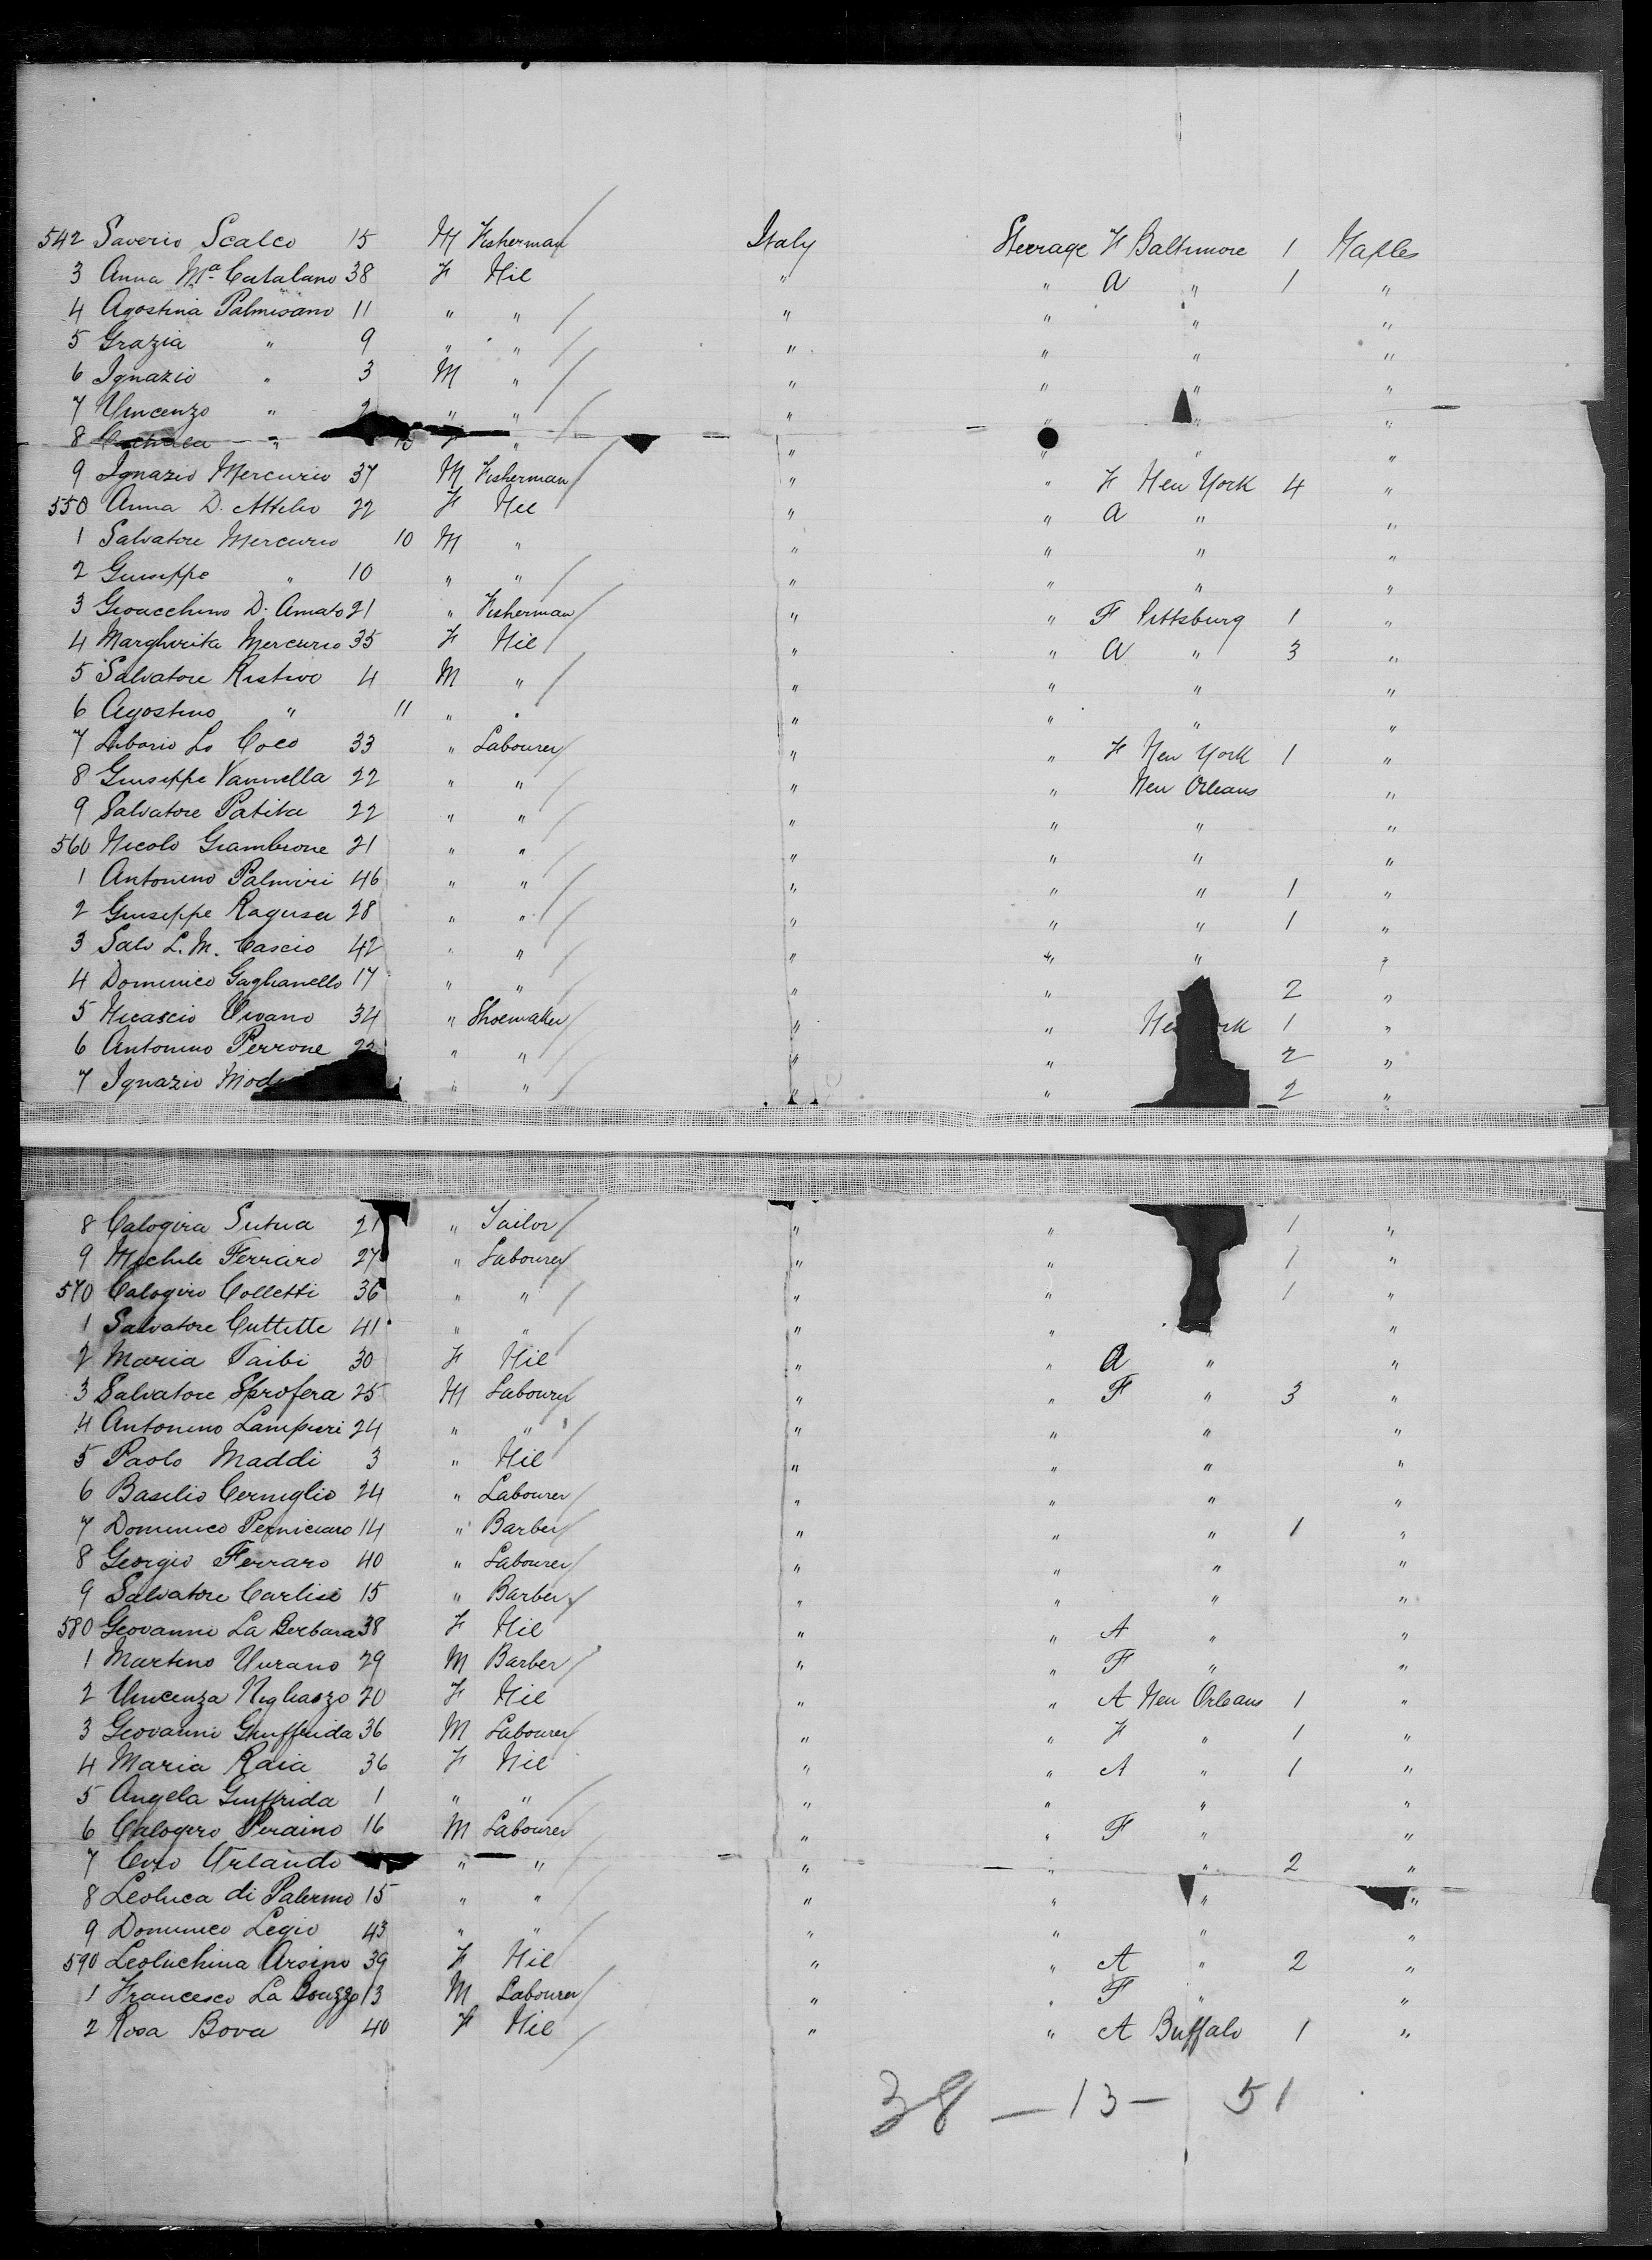 542 Saverio Scalco 15 M Fisherman Italy Steerage F Baltimore 1 Naples
3 Anna Ma Catalano 38 F Nil " " A " 1 "
4 Agostina Palmisano 11 " " " " " "
5 Grazia " 9 " " " " " "
6 Ignazio " 3 M " " " " "
7 Vincenzo " 2 " " " " " "
8 " 10 F " " " " "
9 Ignazio Mercurio 37 M Fisherman " " F New York 4 "
550 Anna D. 22 F Nil " " A " "
1 Salvatore Mercurio 10 M " " " " "
2 Giuseppe " 10 " " " " " "
3 Gioacchino D. Amato 21 " Fisherman " " F Pittsburg 1 "
4 Margherita Mercurio 35 F Nil " " A " 3 "
5 Salvatore Ristivo 4 M " " " " "
6 Agostino " 11 " " " " " "
7 Liborio Lo Coco 33 " Labourer " " F New York 1 "
8 Giuseppe Vannella 22 " " " " New Orleans "
9 Salvatore Patita 22 " " " " " "
560 Nicolo Giambrone 21 " " " " " "
1 Antonino Palmiri 46 " " " " " 1 "
2 Giuseppe Ragusa 28 " " " " " 1 "
3 Salv L. M. Cascio 42 " " " " " "
4 Domenico Gaglianello 17 " " " " 2 "
5 Nicascio 34 " Shoemaker " " Ne rk 1 "
6 Antonino Perrone 22 " " " " 2 "
7 Ignazio Mod " " " " 2 "
8 Calogira Sutua 21 " Tailor " " 1 "
9 Michele Ferraro 27 " Labourer " " 1 "
570 Calogiro Colletti 36 " " " " 1 "
1 Salvatore Cuttitte 41 " " " " "
2 Maria Taibi 30 F Nil " " A " "
3 Salvatore Sprofera 25 M Labourer " " F " 3 "
4 Antonino Lampieri 24 " " " " " "
5 Paolo Maddi 3 " Nil " " " "
6 Basilio Cerniglio 24 " Labourer " " " "
7 Domenico Perniciaro 14 " Barber " " " 1 "
8 Georgio Ferraro 40 " Labourer " " " "
9 Salvatore Carlisi 15 " Barber " " " "
580 Geovanni La Berbara 38 F Nil " " A " "
1 Martino Virano 29 M Barber " " F " "
2 Vincenza Nigliazzo 20 F Nil " " A New Orleans 1 "
3 Geovanni Giuffrida 36 M Labourer " " F " 1 "
4 Maria Raia 36 F Nil " " A " 1 "
5 Angela Giuffrida 1 " " " " " "
6 Calogero Peraino 16 M Labourer " " F " "
7 Ciro Orlando " " " " " 2 "
8 Leoluca di Palermo 15 " " " " " "
9 Domenico Legio 43 " " " " " "
590 Leoluchina Arsino 39 F Nil " " A " 2 "
1 Francesco La 13 M Labourer " " F " "
2 Rosa Bova 40 F Nil " " A Buffalo 1 "
38 — 13 — 51